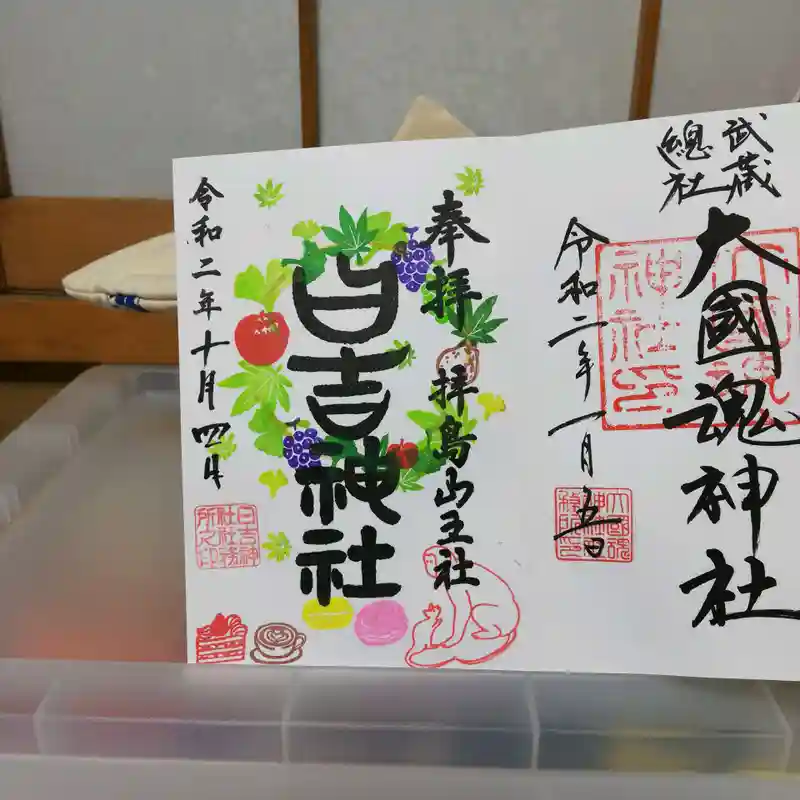 武蔵
總社
大國魂神社
令和二年一月五日
大國魂
神社印
大國魂
神社
奉拝 拝島山王社
日吉神社
令和二年十月四日
日吉神
社社務
所之印